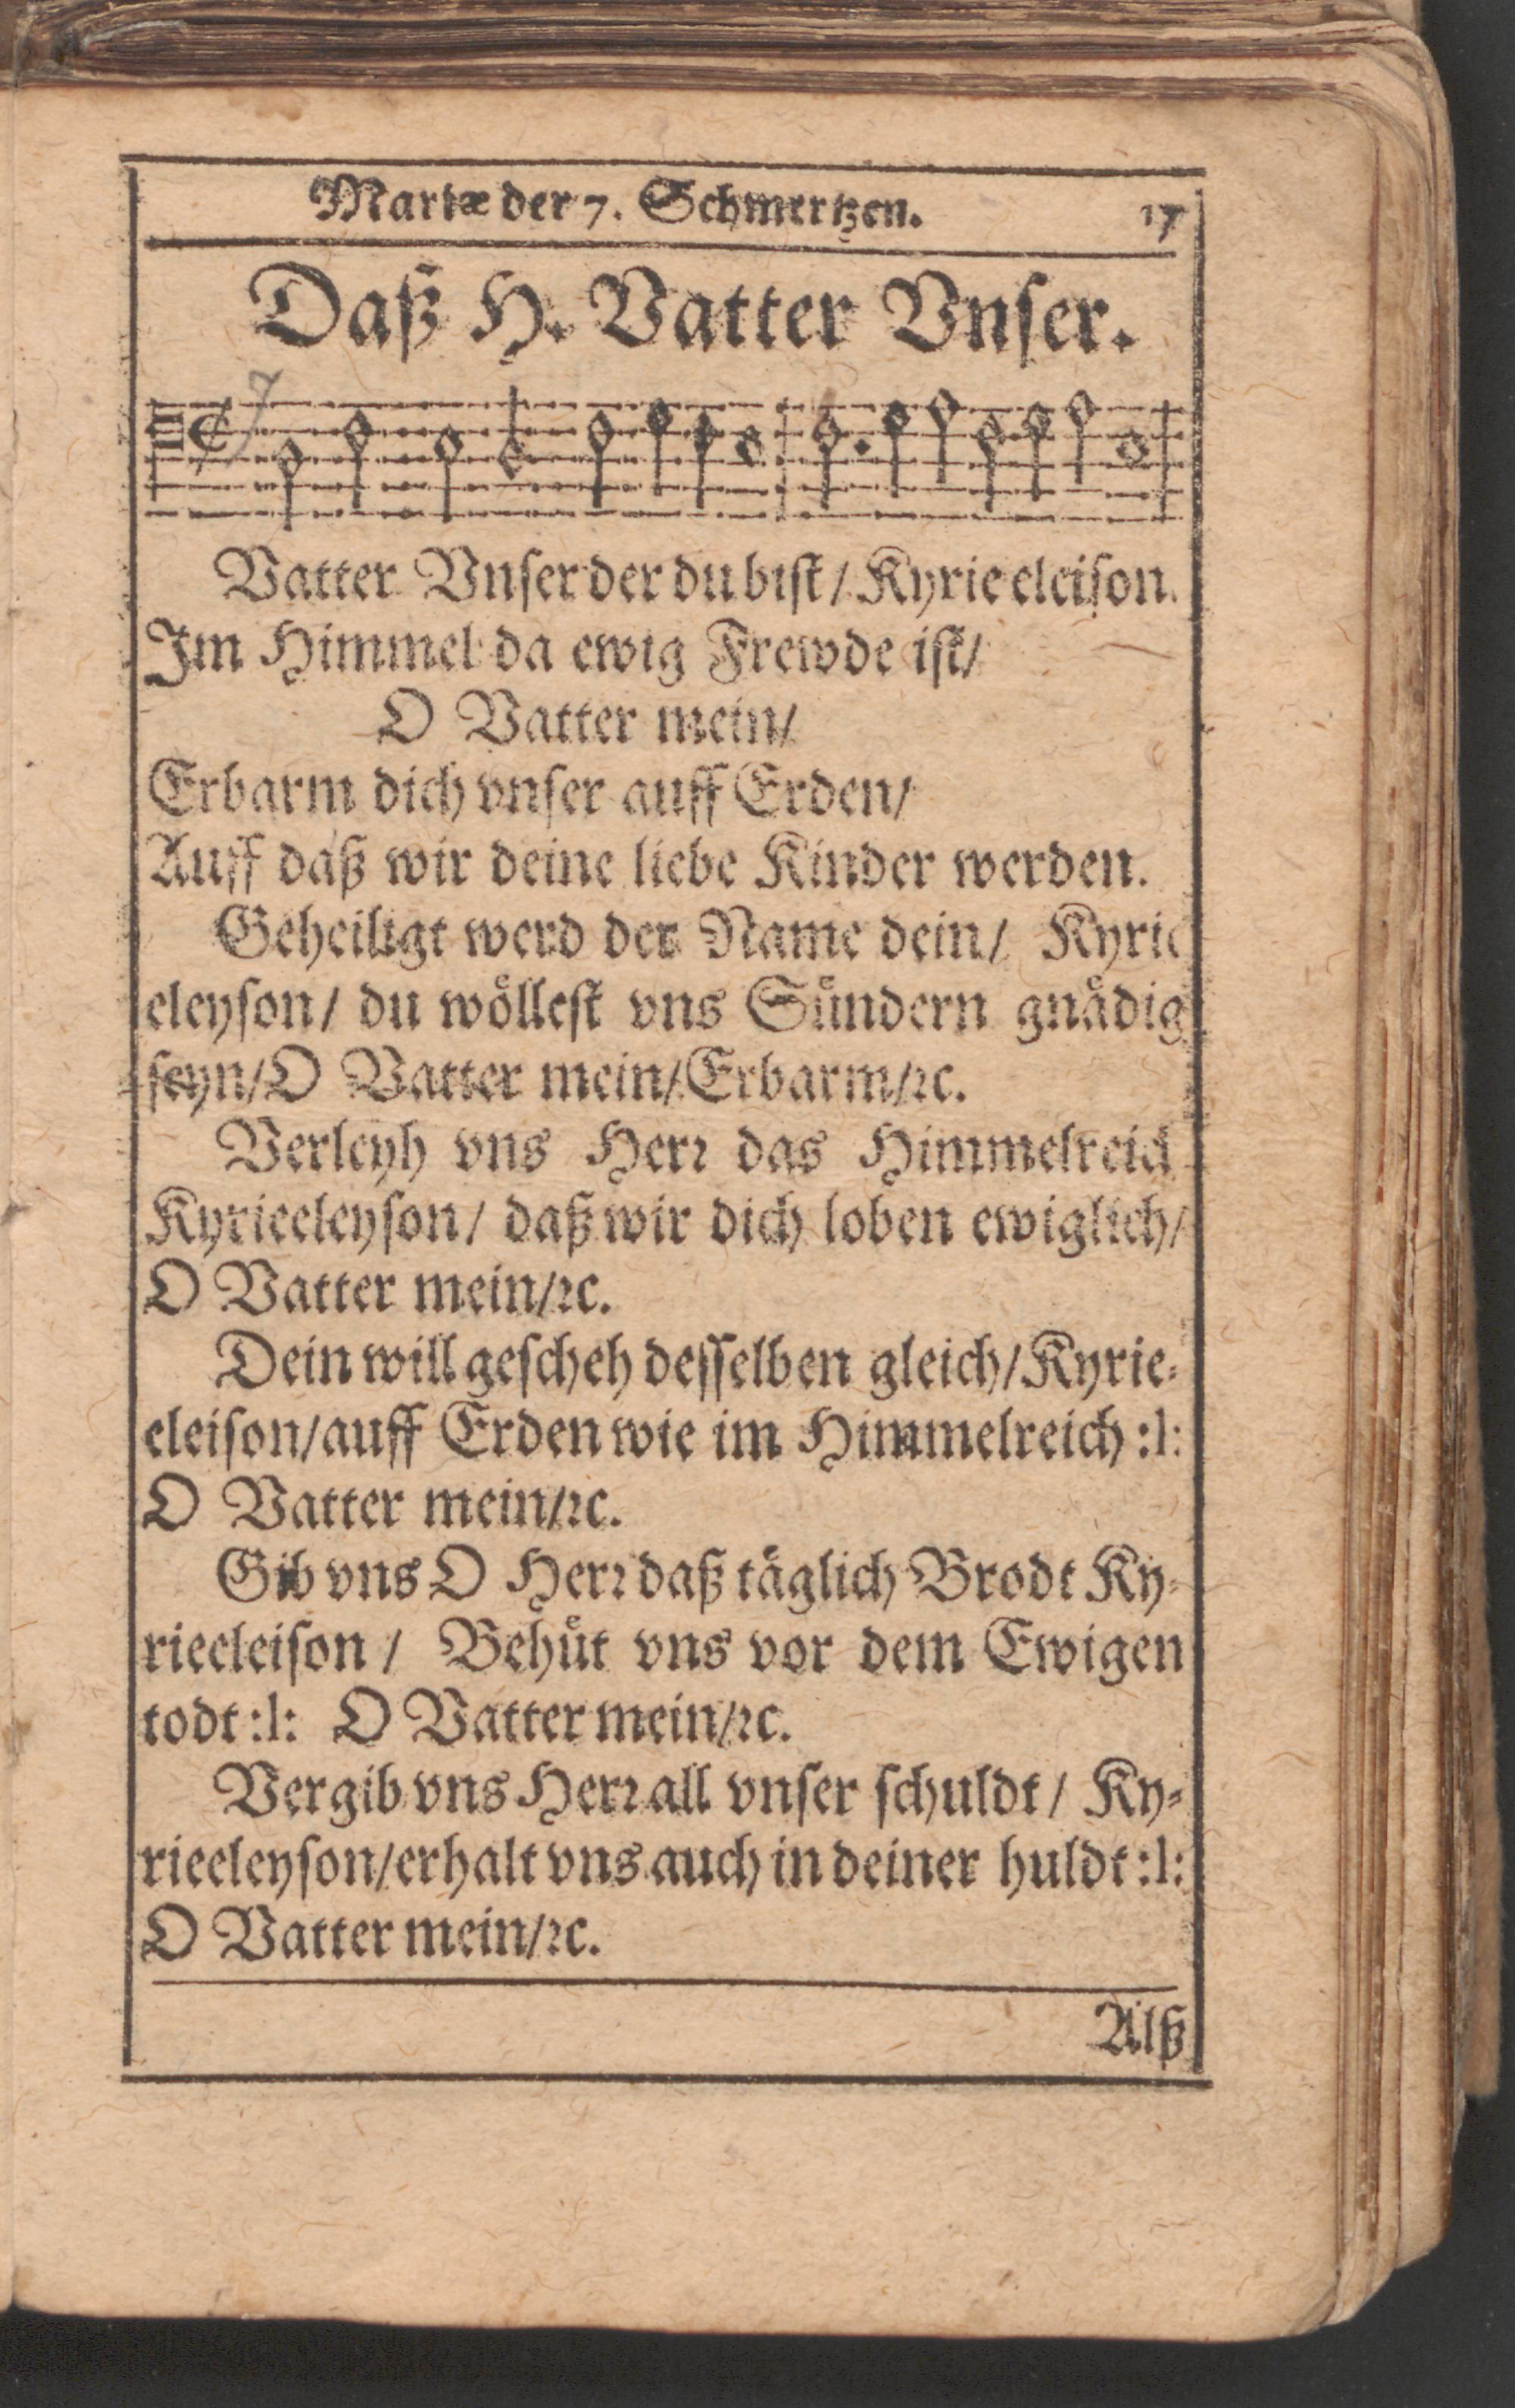 Mariæ der 7. Schmertzen. 17
Daß H. Vatter Vnser.
7
Vatter Vnser der du bist / Kyrie eleison.
Im Himmel da ewig Frewde ist/
O Vatter mein/
Erbarm dich vnser auff Erden/
Auff daß wir deine liebe Kinder werden.
Geheiligt werd der Name dein/ Kyrie
eleyson/ du wöllest vns Sündern gnädig
seyn/O Vatter mein/Erbarm/ꝛc.
Verleyh vns Herꝛ das Himmelreich
Kyrieeleyson/ daß wir dich loben ewiglich/
O Vatter mein/ꝛc.
Dein will gescheh desselben gleich/Kyrie-
eleison/auff Erden wie im Himmelreich :l:
O Vatter mein/ꝛc.
Gib vns O Herꝛ daß täglich Brodt Ky-
rieeleison / Behüt vns vor dem Ewigen
todt :l: O Vatter mein/ꝛc.
Vergib vns Herꝛ all vnser schuldt / Ky-
rieeleyson/erhalt vns auch in deiner huldt :l:
O Vatter mein/ꝛc.
Alß